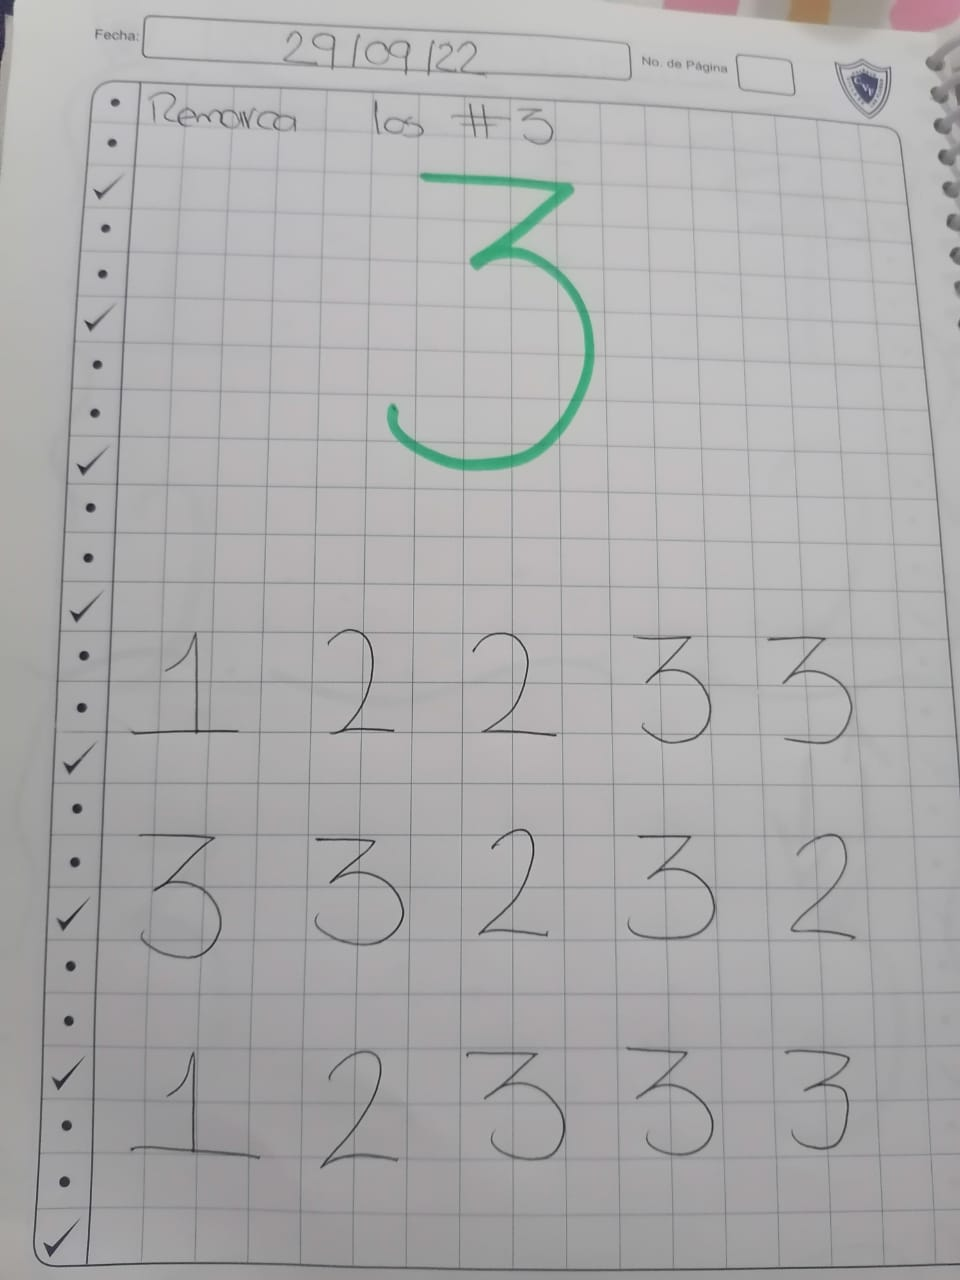 Fecha: 29/09/22 No. de Página
Remarca los # 3
3
1 2 2 3 3
3 3 2 3 2
1 2 3 3 3